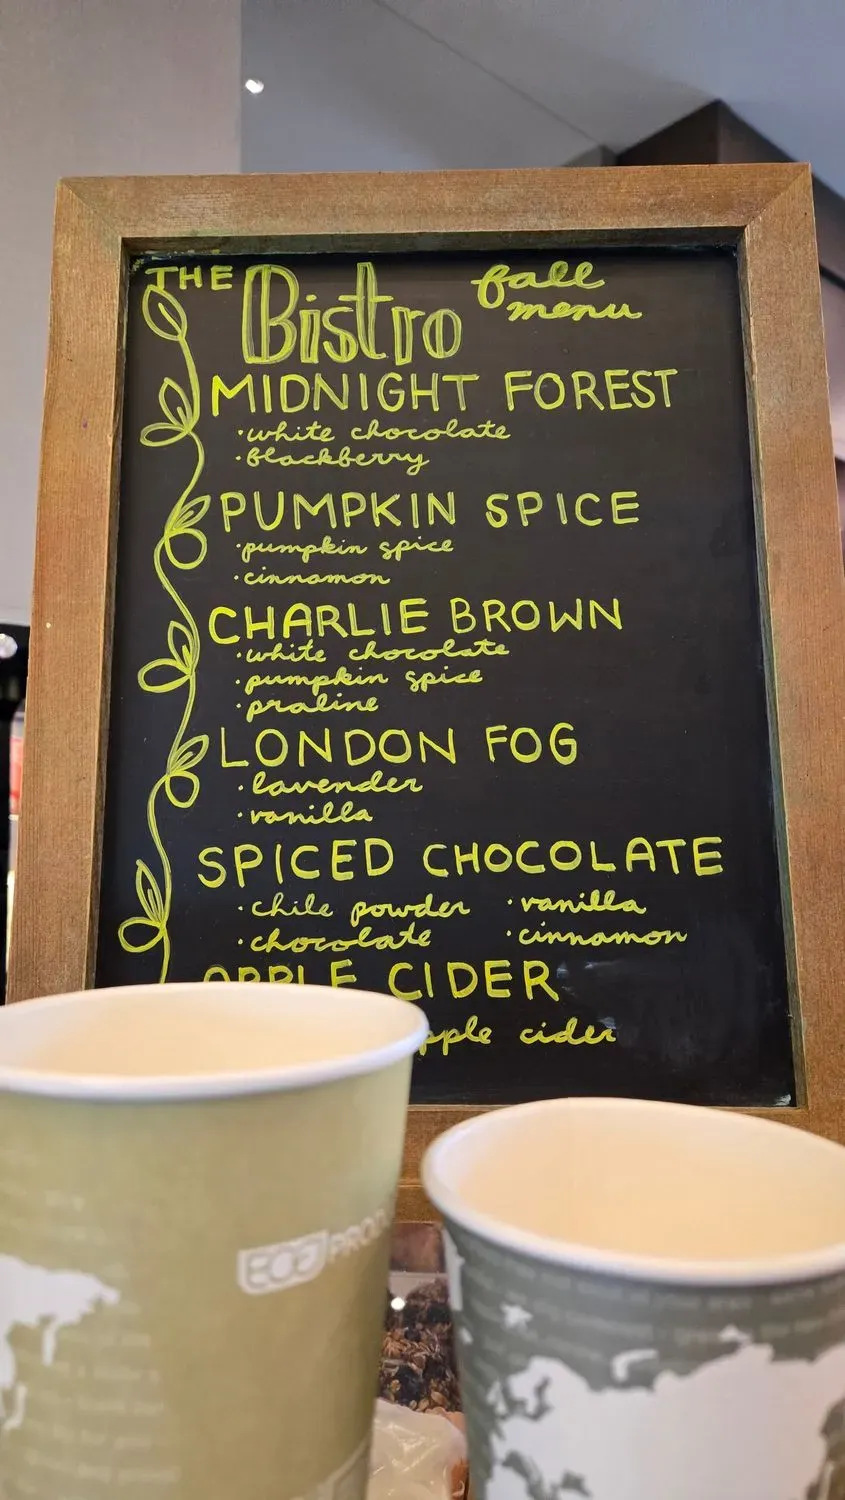 THE Bistro fall menu
MIDNIGHT FOREST
·white chocolate
·blackberry
PUMPKIN SPICE
·pumpkin spice
·cinnamon
CHARLIE BROWN
·white chocolate
·pumpkin spice
·praline
LONDON FOG
·lavender
·vanilla
SPICED CHOCOLATE
·chile powder ·vanilla
·chocolate ·cinnamon
APPLE CIDER
pple cider
ECO PRODU